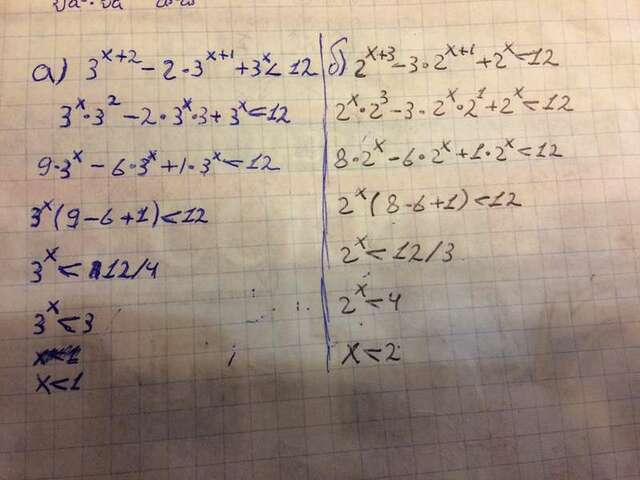 а) 3^(x+2) - 2·3^(x+1) + 3^x < 12
3^x·3^2 - 2·3^x·3 + 3^x < 12
9·3^x - 6·3^x + 1·3^x < 12
3^x(9-6+1) < 12
3^x < 12/4
3^x < 3
x < 1
б) 2^(x+3) - 3·2^(x+1) + 2^x < 12
2^x·2^3 - 3·2^x·2^1 + 2^x < 12
8·2^x - 6·2^x + 1·2^x < 12
2^x(8-6+1) < 12
2^x < 12/3
2^x < 4
x < 2